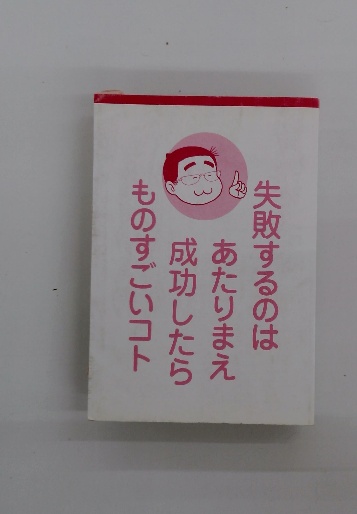 失敗するのは
あたりまえ
成功したら
ものすごいコト